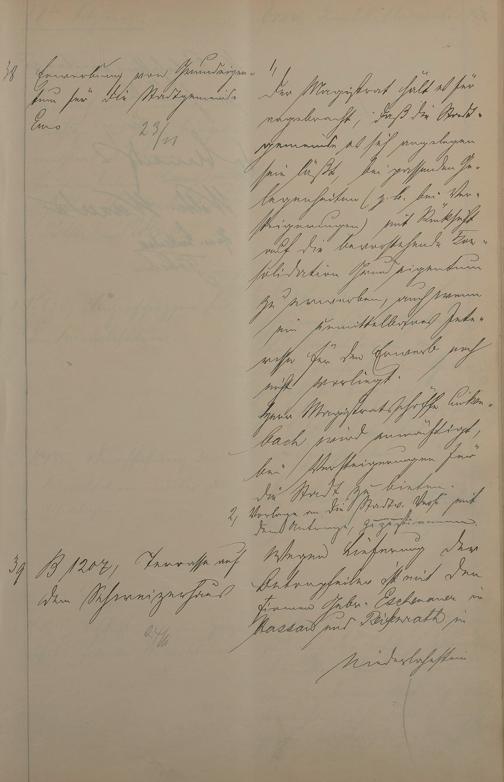 38 Erwerbung von Grundeigen-
tum für die Stadtgemeinde
Ems
23/11
1,
Der Magistrat hält es für
angebracht, daß die Stadt-
gemeinde es sich angelegen
sein läßt, bei passenden Ge-
legenheiten (z. b. bei Ver-
steigerungen) mit Rücksicht
auf die bevorstehende Kon-
solidation Grundeigentum
zu erwerben, auch wenn
ein unmittelbares Inte-
resse für den Erwerb noch
nicht vorliegt.
Herr Magistratsschöffe
bach wird ermächtigt,
bei Versteigerungen für
die Stadt zu bieten.
2, Vorlage an die Stadtv. Vers. mit
dem Antrage, zuzustimmen.
39 B 1207, Terrasse auf
dem Schweizerhaus
24/11
Wegen Lieferung der
Betonpfeiler ist mit den
Firmen Gebr. in
Nassau und in
Niederlahnstein